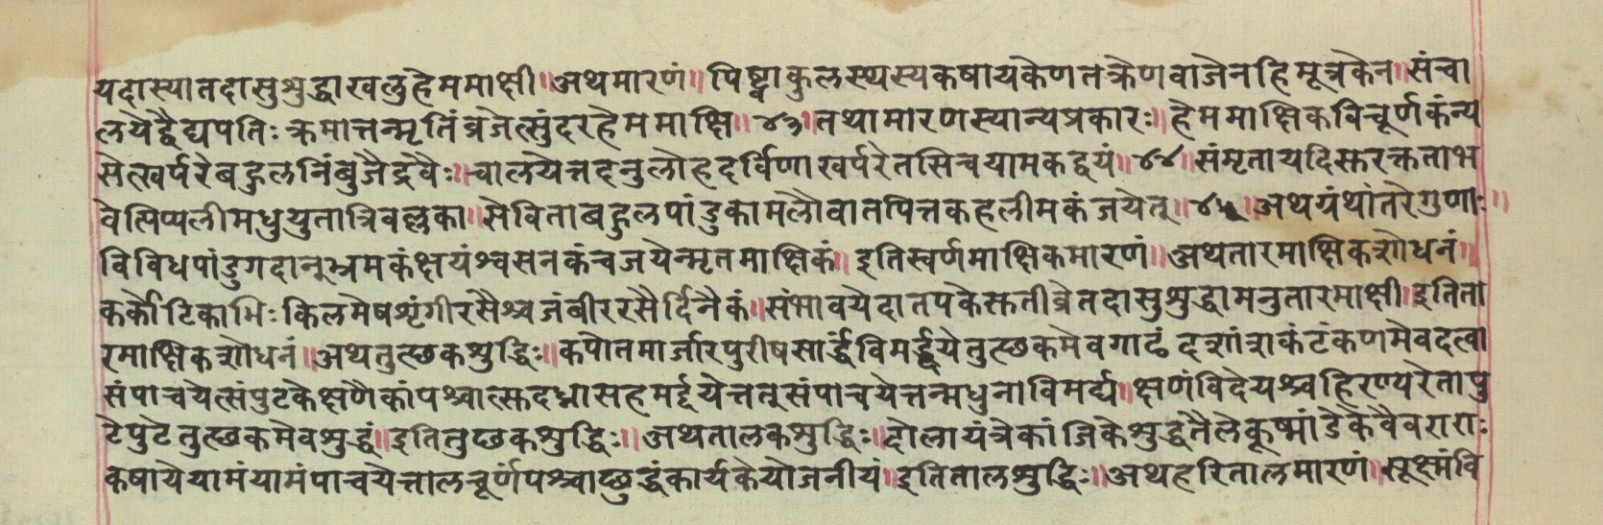 यदास्यातदासुशुद्धाखलुहेममाक्षी॥अथमारणं॥पिष्ट्वाकुलस्थस्यकषायकेणतक्रेणवाजेनहिमूत्रकेन॥संचा
लयेद्वैद्यपतिःक्रमात्तन्मृतिंव्रजेत्सुंदरहेममाक्षि॥४३॥तथामारणस्यान्यप्रकारः॥हेममाक्षिकविचूर्णकंन्य
सेत्खर्परेबहुलनिंबुजैर्द्रवैः॥चालयेत्तदनुलोहदर्विणाखर्परेतसिचयामकद्वयं॥४४॥संमृतायदिस्तरक्तताभ
वेत्पिप्पलीमधुयुतात्रिवल्लका॥सेविताबहुलपांडुकामलौवातपित्तकहलीमकंजयेत्॥४५॥अथग्रंथांतरेगुणाः॥
विविधपांडुगदानुभ्रमकंक्षयंश्वसनकंचजयेन्मृतमाक्षिकं॥इतिस्वर्णमाक्षिकमारणं॥अथतारमाक्षिकशोधनं॥
कर्कोटिकाभिःकिलमेषशृंगीरसैश्चजंबीररसैर्दिनैकं॥संभावयेदातपकेस्ततीव्रेतदासुशुद्धामनुतारमाक्षी॥इतिता
रमाक्षिकशोधनं॥अथतुत्छकशुद्धिः॥कपोतमार्जारपुरीषसार्द्धंविमर्द्दयेतुत्छकमेवगाढंदशांशकंटंकणमेवदत्वा
संपाचयेत्संपुटकेक्षणैकांपश्चात्स्तदध्नासहमर्द्दयेत्ततूसंपाचयेत्तन्मधुनाविमर्द्य॥क्षणंविदेयश्चहिरण्यरेतापु
टेपुटेतुत्छकमेवशुद्धं॥इतितुछकशुद्धिः॥अथतालकशुद्धिः॥दोलायंत्रेकांजिकेशुद्धतैलेकूष्मांडेकेवैवराराः
कषायेयामंयामंपाचयेत्तालचूर्णंपश्चाछुद्धंकार्यकेयोजनीयं॥इतितालशुद्धिः॥अथहरितालमारणं॥सूक्ष्मंवि